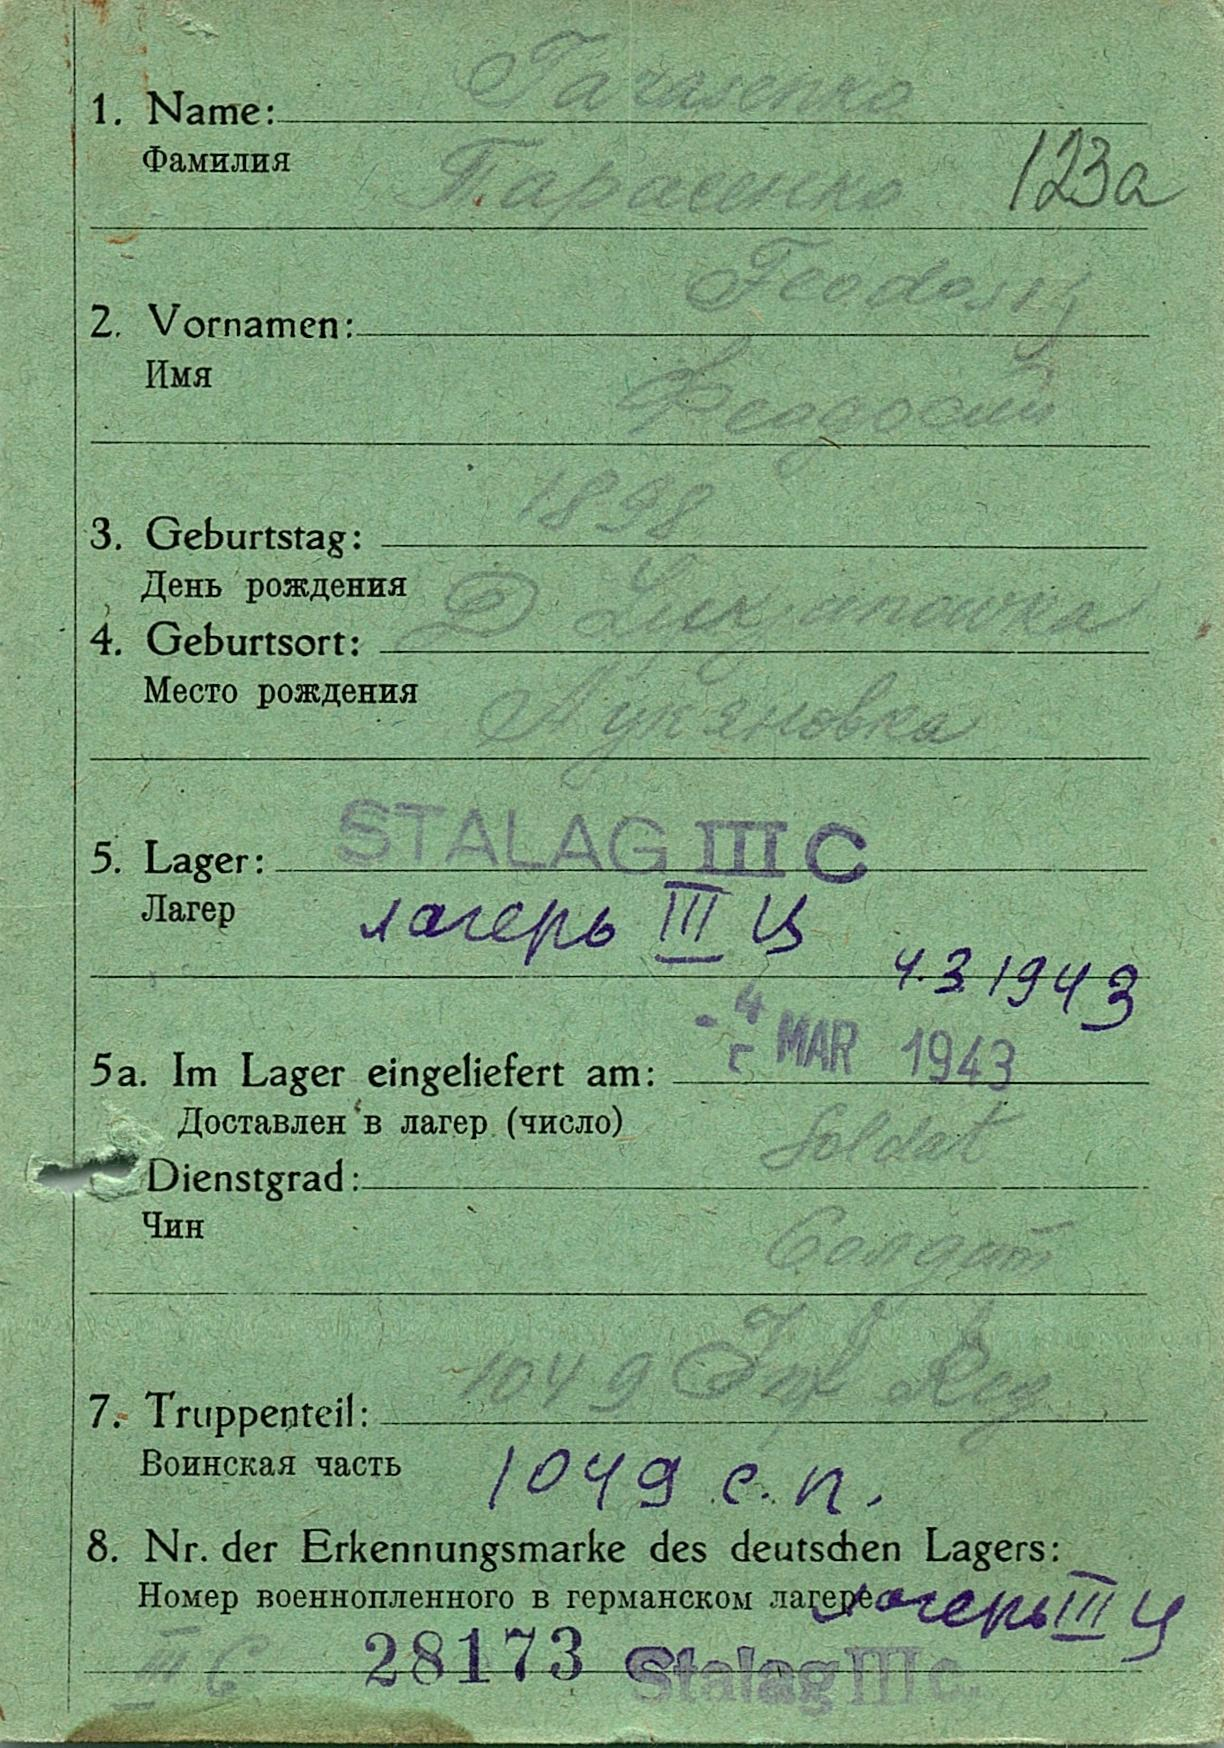 Tarasenko
1. Name:
Фамилия
Тарасенко 123a
Feodosij
2. Vornamen:
Имя
Феодосий
1898
3. Geburtstag:
День рождения
D Lukjanowka
4. Geburtsort:
Место рождения
Лукяновка
STALAG III C
5. Lager:
Лагер
лагерь III Ц
4.3.1943
-4 MAR 1943
5a. Im Lager eingeliefert am:
Доставлен в лагер (число)
Soldat
Dienstgrad:
Чин
Солдат
1049 Inf Reg
7. Truppenteil:
Воинская часть
1049 с.п.
8. Nr. der Erkennungsmarke des deutschen Lagers:
Номер военнопленного в германском лагере
лагерь III Ц
III C 28173 Stalag III c.